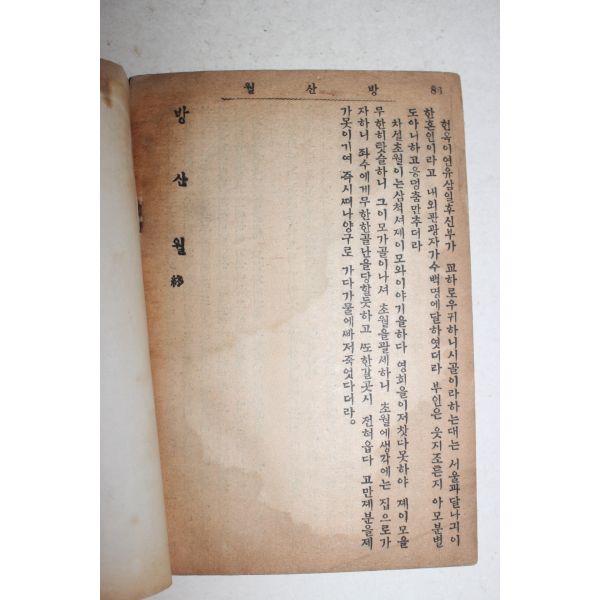 86
방 산 월
현옥이연유삼일후신부가 교하로우귀하니시골이라하는대는 서울과달나귀이
한혼인이라고 내외관광자가수백명에달하엿더라 부인은 웃지조흔지 아모분별
도아니하고응덩춤만추더라
차셜초월이는삼척셔졔이모와이야기을하다 영회을이저찻다못하야 졔이모을
무한히랏슬하니 그이모가골이나셔 초월을괄셰하니 초월에생각에는 집으로가
자하니 좌수에게무한한골난을당할듯하고 또한갈곳시 전혀읍다 고만졔분을졔
가못이기여 즉시떠나양구로 가다가물에빠저죽엇다더라。
방 산 월 終